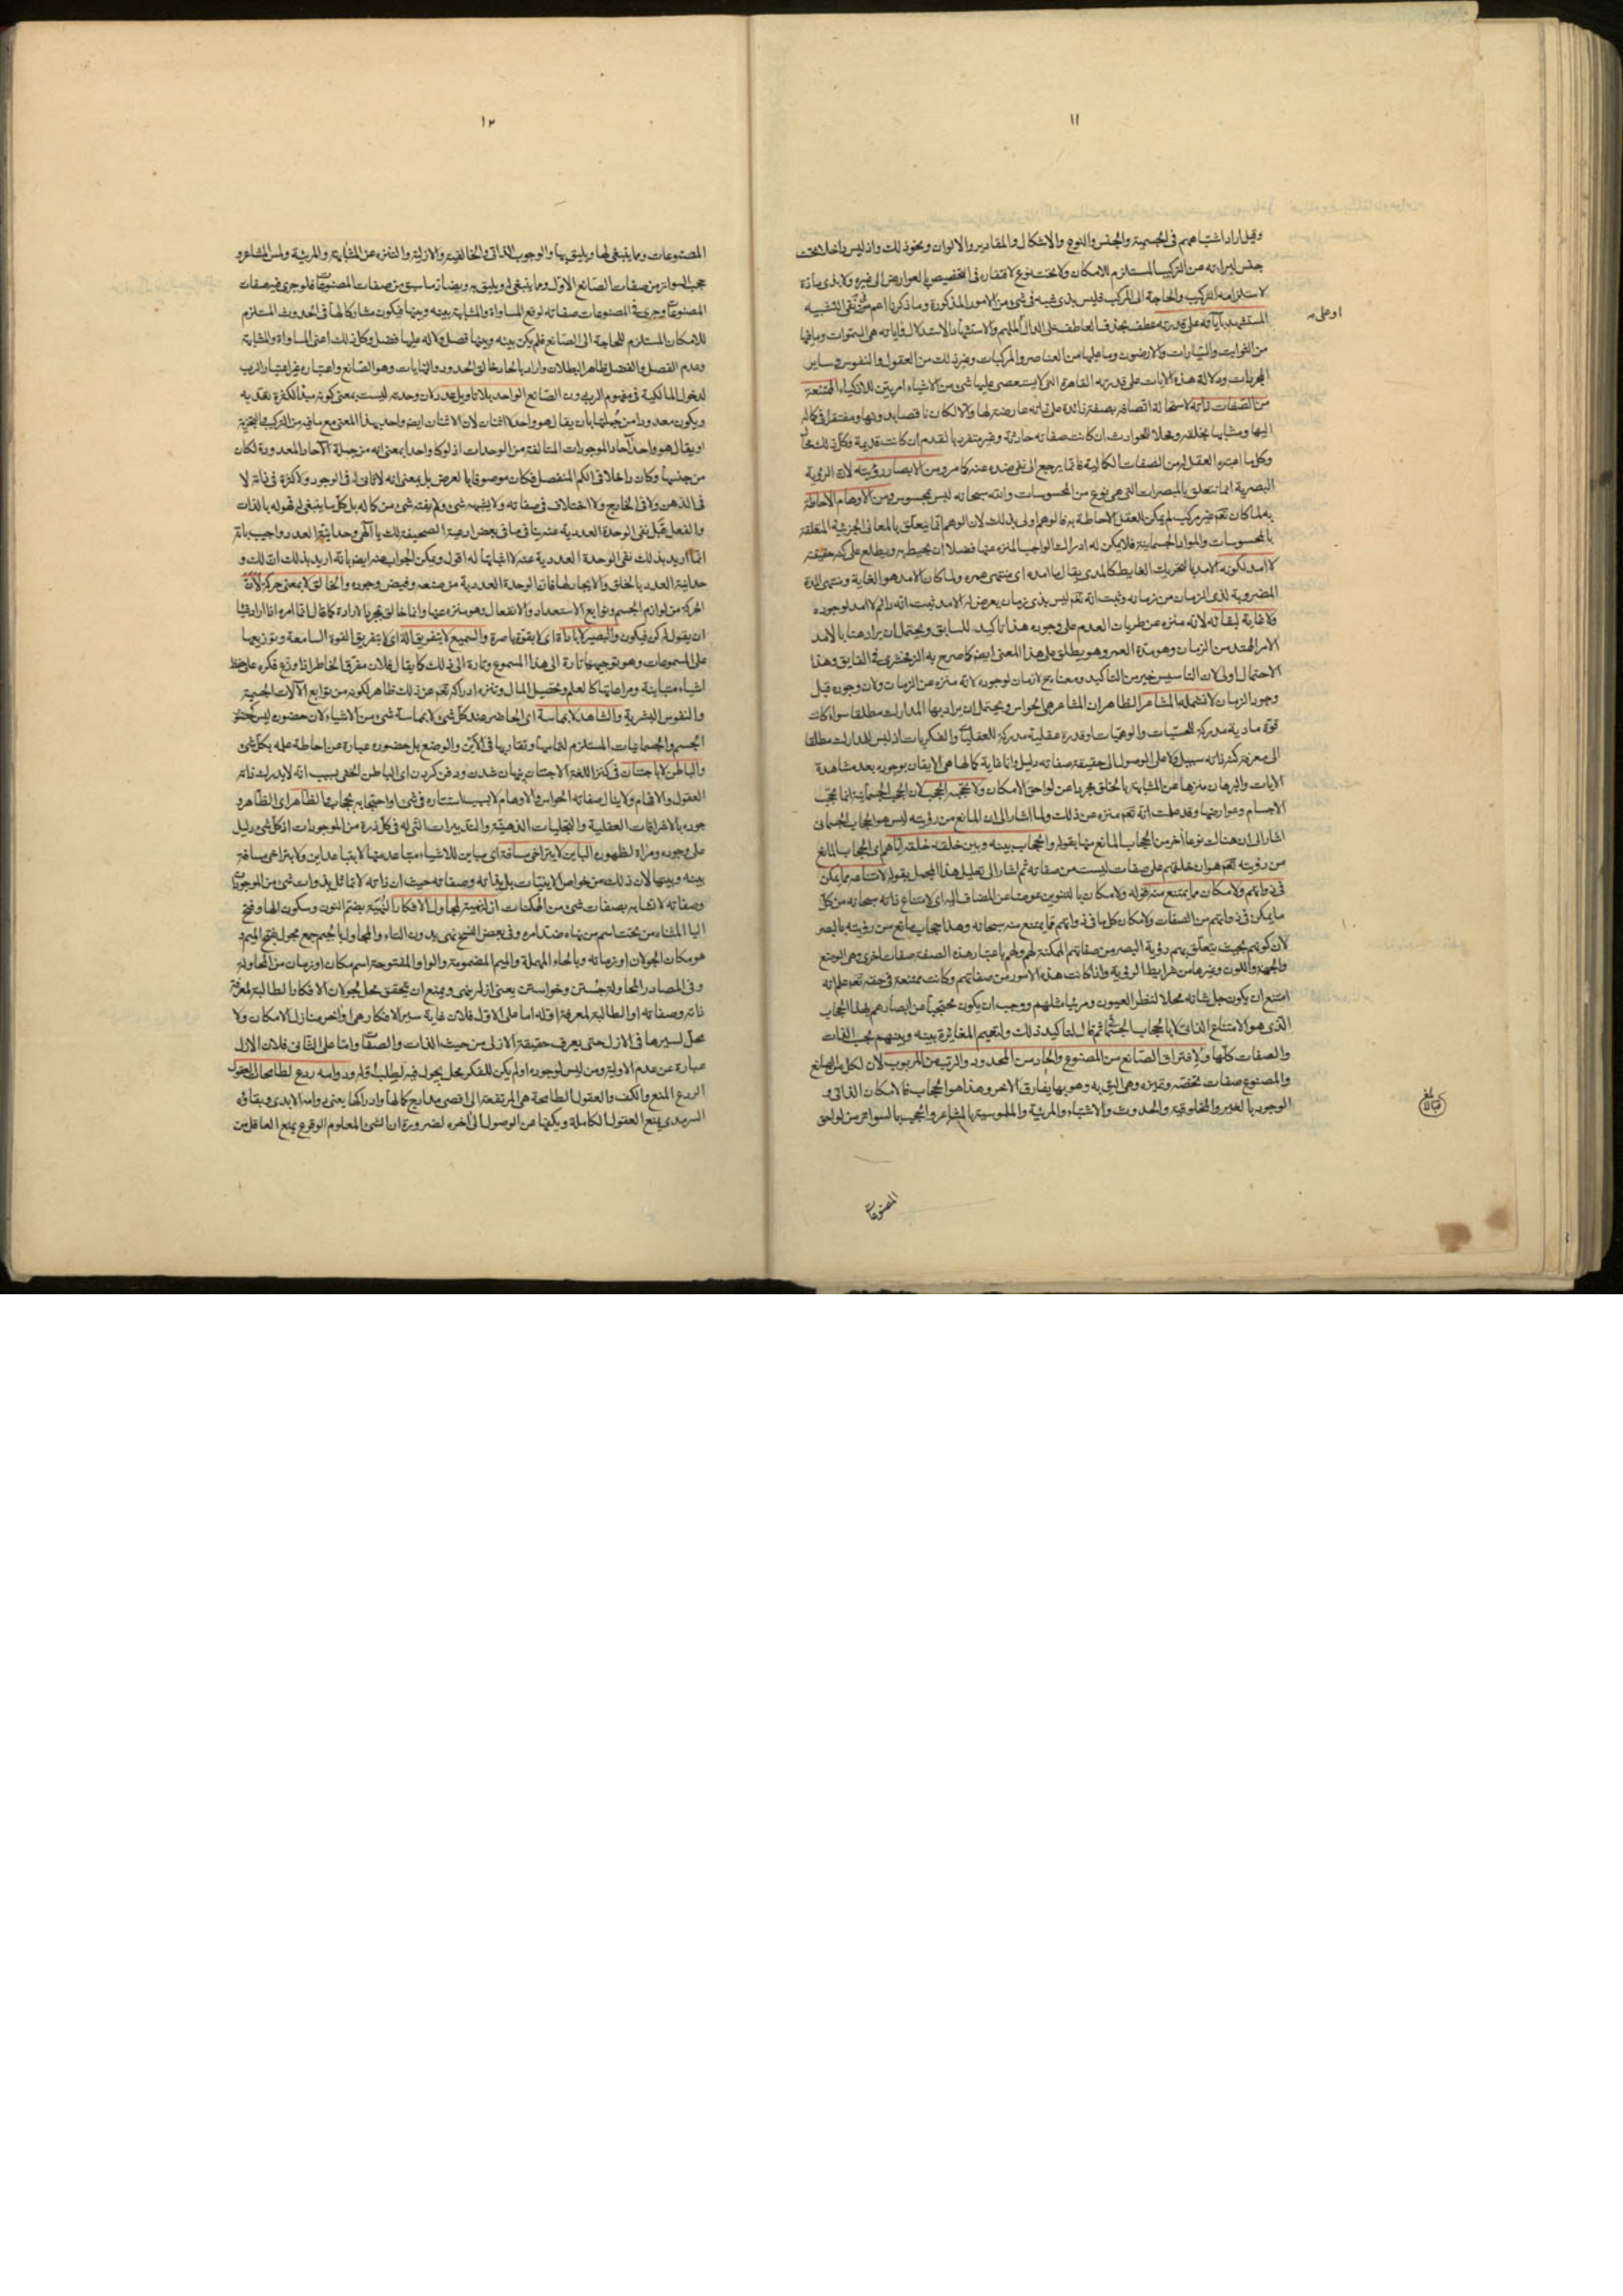 ١١
وقيل اراد اشتباههم فى الجسمية والجنس والنوع والاشكال والمقادير والالوان ونحو ذلك واذ ليس داخلا تحت
جنس لبراءته عن التركيب المستلزم للامكان ولا تحت نوع لافتقاره فى التخصيص بالعوارض الى غيره ولا بذى مادة
لاستلزامه التركيب والحاجة الى المركب فليس بذى شبيه فى شىء من الامور المذكورة وما ذكرنا اعم من نفى التشبيه
المستشهد بآياته على قدرته عطف بحذف العاطف على الدال الملهم والاستشهاد الاستدلال فاياته هى السموات وما فيها
او على
من الثوابت والسيارات والارضون وما عليها من العناصر والمركبات وغير ذلك من العقول والنفوس وساير
المجردات ودلالة هذه الايات على قدرته القاهرة التى لا يستعصى عليها شىء من الاشياء امر بيّن للاذكياء الممتنعة
من الصفات ذاته لاستحالة اتصافه بصفة زائدة على ذاته عارضة لها والا لكان ناقصا بدونها ومفتقرا فى كماله
اليها ومشابها بخلقه ومحلا للحوادث ان كانت صفاته حادثة وغير متفرد بالقدم ان كانت قديمة وكل ذلك محال
وكل ما اعتبره العقل له من الصفات الكمالية فانما يرجع الى نفى ضده عنه كما مر ومن الابصار رؤيته لان الرؤية
البصرية انما تتعلق بالمبصرات التى هى نوع من المحسوسات والله سبحانه ليس بمحسوس ومن الاوهام الاحاطة
به لما كان تعم غير مركب لم يمكن العقل الاحاطة به فالوهم اولى بذلك لان الوهم انما يتعلق بالمعانى الجزئية المتعلقة
بالمحسوسات والمواد الجسمانية فلا يمكن له ادراك الواجب المنزه عنها فضلا ان يحيط به ويطلع على كنه حقيقته
لا امد لكونه الامد بالتحريك الغاية كالمدى يقال ما امده اى منتهى عمره ولما كان الامد هو الغاية ومنتهى المدة
المضروبة لذى الزمان من زمانه وثبت انه تعم ليس بذى زمان يعرض له الامد ثبت انه دائم لا امد لوجوده
ولا غاية لبقائه لانه منزه عن طريان العدم على وجوده هذا تاكيد للسابق ويحتمل ان يراد هنا بالامد
الامر الممتد من الزمان وهو مدة العمر وهو يطلق على هذا المعنى ايضا كما صرح به الزمخشرى فى الفايق وهذا
الاحتمال اولى لان التاسيس خير من التاكيد ومعناه ح لا زمان لوجوده لانه منزه عن الزمان ولان وجوده قبل
وجود الزمان لا تشمله المشاعر الظاهر ان المشاعر هى الحواس ويحتمل ان يراد بها المدارك مطلقا سواء كانت
قوة مادية مدركة للحسيات والوهميات او قدرة عقلية مدركة للعقليات والفكريات اذ ليس للمدارك مطلقا
الى معرفة كنه ذاته سبيل ولا على الوصول الى حقيقة صفاته دليل وانما غاية كمالها هى الايقان بوجوده بعد مشاهدة
الايات والبرهان منزها عن المشابهة بالخلق مجردا عن لواحق الامكان ولا تحجبه الحجب لان الحجب الجسمانية انما تحجب
الاجسام وعوارضها وقد علمت انه تعم منزه عن ذلك ولما اشار الى ان المانع من رؤيته ليس هو الحجاب الجسمانى
اشار الى ان هناك نوعا آخر من الحجاب المانع منها بقوله والحجاب بينه وبين خلقه خلقه اياهم اى الحجاب المانع
من رؤيته تعم هو ان خلقهم على صفات ليست من صفاته ثم اشار الى تعليل هذا المجمل بقوله لامتناعه مما يمكن
فى ذواتهم ولامكان مما يمتنع منه قوله ولامكان بالتنوين عوضا عن المضاف اليه اى لامتناع ذاته سبحانه من كل
ما يمكن فى ذواتهم من الصفات ولامكان كل ما فى ذواتهم مما يمتنع منه سبحانه وهذا حجاب مانع من رؤيته بالبصر
لان كونهم بحيث يتعلق بهم رؤية البصر من صفاتهم الممكنة لهم ولهم باعتبار هذه الصفة صفات اخرى وهى الوضع
والجهة واللون وغيرها من شرايط الرؤية واذا كانت هذه الامور من صفاتهم وكانت ممتنعة فى حقه تعم علم انه
امتنع ان يكون جل شانه محلا لنظر العيون ومرئيا مثلهم ووجب ان يكون محتجبا عن ابصارهم بهذا الحجاب
الذى هو الامتناع الذاتى لا بالحجاب الجسمانى ثم قال لتاكيد ذلك ولتعميم المغايرة بينه وبينهم بحسب الذات
والصفات كلها ولافتراق الصانع من المصنوع والحاد من المحدود والرب من المربوب لان لكل من الصانع
والمصنوع صفات تخصه وتميزه وهى اليق به وهو بها يفارق الاخر وهذا هو الحجاب فالامكان الذاتى و
الوجود بالغير والمخلوقية والحدوث والاشتباه والمرئية والملموسية بالمشاعر والحجب بالسواتر من لواحق
المصنوعات
١٢
المصنوعات وما ينبغى لها ويليق بها والوجوب الذاتى والخالقية والازلية والتنزه عن المشابهة والمرئية ولمس المشاعر و
حجب السواتر من صفات الصانع الاول وما ينبغى له ويليق به ويضاد ما سبق من صفات المصنوعات فلو جرى فيه صفات
المصنوعات وجرى فى المصنوعات صفاته لوقع المساواة والمشابهة بينه وبينها فيكون مشاركا لها فى الحدوث المستلزم
للامكان المستلزم للحاجة الى الصانع فلم يكن بينه وبينها فصل ولا له عليها فضل وكل ذلك اعنى المساواة والمشابهة
وعدم الفصل والفضل ظاهر البطلان واراد بالحاد خالق الحدود والنهايات وهو الصانع واعتباره غير اعتبار الرب
لدخول المالكية فى مفهوم الرب دون الصانع الواحد بلا تاويل عدد لان وحدته ليست بمعنى كونه مبدأ لكثرة تعد به
ويكون معدودا من جملتها بان يقال هو واحد لا اثنان لان الاثنان ايضا واحد بهذا المعنى مع ما فيه من التركيب والتجزية
او يقال هو واحد من آحاد الموجودات المتالفة من الوحدات اذ لو كا واحدا بمعنى انه من جملة الآحاد المعدودة لكان
من جنسها وكان داخلا فى الكم المنفصل فكان موصوفا بالعرض بل بمعنى انه لا ثانى له فى الوجود ولا كثرة فى ذاته لا
فى الذهن ولا فى الخارج ولا اختلاف فى صفاته ولا يشبهه شىء ولم يفته شىء من كماله بل كل ما ينبغى له فهو له بالذات
والفعل قيل نفى الوحدة العددية عنه ينافى ما فى بعض ادعية الصحيفة لك يا آلهى وحدانية العدد واجيب بانه
انما اريد بذلك نفى الوحدة العددية عنه لا اثباتها له اقول ويمكن الجواب عنه ايضا بانه اريد بذلك ان لك و
حدانية العدد بالخلق والايجاد لها فان الوحدة العددية من صنعه وفيض وجوده والخالق لا بمعنى حركة لان
الحركة من لوازم الجسم وتوابع الاستعداد والانفعال وهو منزه عنها وانما خالق بمجرد الارادة كما قال انما امره اذا اراد شيئا
ان يقول له كن فيكون والبصير لا باداة اى لا بقوة باصرة والسميع لا بتفريق آلة اى لا بتفريق القوة السامعة وتوزيعها
على المسموعات وهو توجيهها تارة الى هذا المسموع وتارة الى ذلك كما يقال فلان مفرق الخاطر اذا وزع فكره على حفظ
اشياء متباينة ومراعاتها كالعلم وتحصيل المال وتنزه ادراكه تعم عن ذلك ظاهر لكونه من توابع الآلات الجسمية
والنفوس البشرية والشاهد لا بمماسة اى الحاضر عند كل شىء لا بمماسة شىء من الاشياء لان حضوره ليس كحضور
الجسم والجسمانيات المستلزم لتماسها وتقاربها فى الاين والوضع بل حضوره عبارة عن احاطة علمه بكل شىء
والباطن لا باجتنان فى كنز اللغة الاجتنان پنهان شدن ودفن كردن اى الباطن الخفى بسبب انه لا يدرك ذاته
العقول والافهام ولا ينال صفاته الحواس والاوهام لا بسبب استتاره فى شىء او احتجابه بحجاب ما الظاهر اى الظاهر و
جوده بالاشراقات العقلية والتجليات الذهنية والتدبيرات التى له فى كل ذرة من الموجودات اذ كل شىء دليل
على وجوده ومرآة لظهوره الباين لا بتراخى مسافة اى مباين للاشياء متباعد عنها لا بتباعد اين ولا بتراخى مسافة
بينه وبينها لان ذلك من خواص الاينيات بل بذاته وصفاته حيث ان ذاته لا تماثل بذوات شىء من الموجودات
وصفاته لا تشابه بصفات شىء من الممكنات ازله نهية لمجاول الافكار النهية بضم النون وسكون الهاء وفتح
اليا المثناه من تحت اسم من نهاه ضد امره وفى بعض النسخ نهى بدون التاء والمجاول بالجيم جمع مجول بفتح الميم و
هو مكان الجولان او زمانه وبالحاء المهملة والميم المضمومة والواو المفتوحة اسم مكان او زمان من المحاولة
وفى المصادر المحاولة جُستن وخواستن يعنى ازله ينهى ويمنع ان يتحقق محل لجولان الافكار الطالبة لمعرفة
ذاته وصفاته او الطالبة لمعرفة ازله اما على الاول فلان غاية سير الافكار هى اواخر منازل الامكان ولا
محل لسيرها فى الازل حتى يعرف حقيقة الازلى من حيث الذات والصفات واما على الثانى فلان الازل
عبارة عن عدم الاولية ومن ليس لوجوده اول لم يكن للفكر محل يجول فيه لطلب اوله ودوامه ردع لطامحات العقول
الردع المنع والكف والعقول الطامحة هى المرتفعة الى اقصى مدارج كمالها وادراكها يعنى دوامه الابدى وبقاؤه
السرمدى يمنع العقول الكاملة ويكفها عن الوصول الى آخره لضرورة ان الشىء المعلوم الوقوع يمنع العاقل من